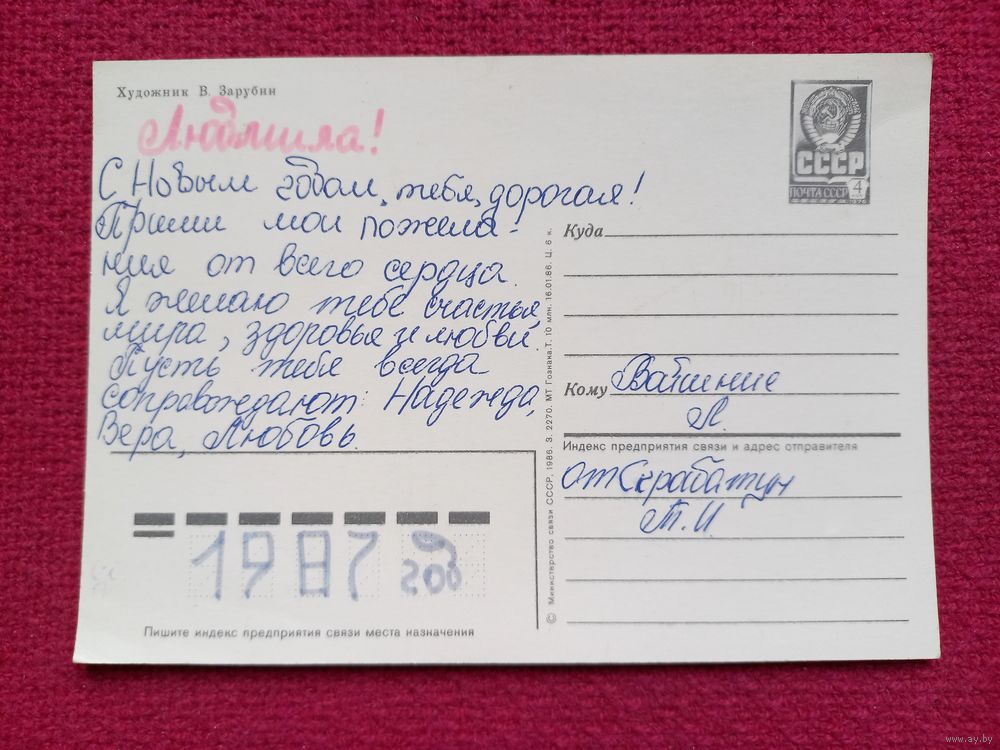 Художник В. Зарубин
Людмила!
С Новым годом, тебя, дорогая!
Прими мои пожела-
ния от всего сердца.
Я желаю тебе счастья,
мира, здоровья и любви.
Пусть тебя всегда
сопровождают: Надежда,
Вера, Любовь.
1987 год
Пишите индекс предприятия связи места назначения
© Министерство связи СССР, 1986. З. 2270. МТ Гознака.Т. 10 млн. 16.01.86. Ц. 6 к.
СССР
ПОЧТА СССР 4
1976
Куда
Кому
Л.
Индекс предприятия связи и адрес отправителя
от Скрабатун
Т. И
www.ay.by